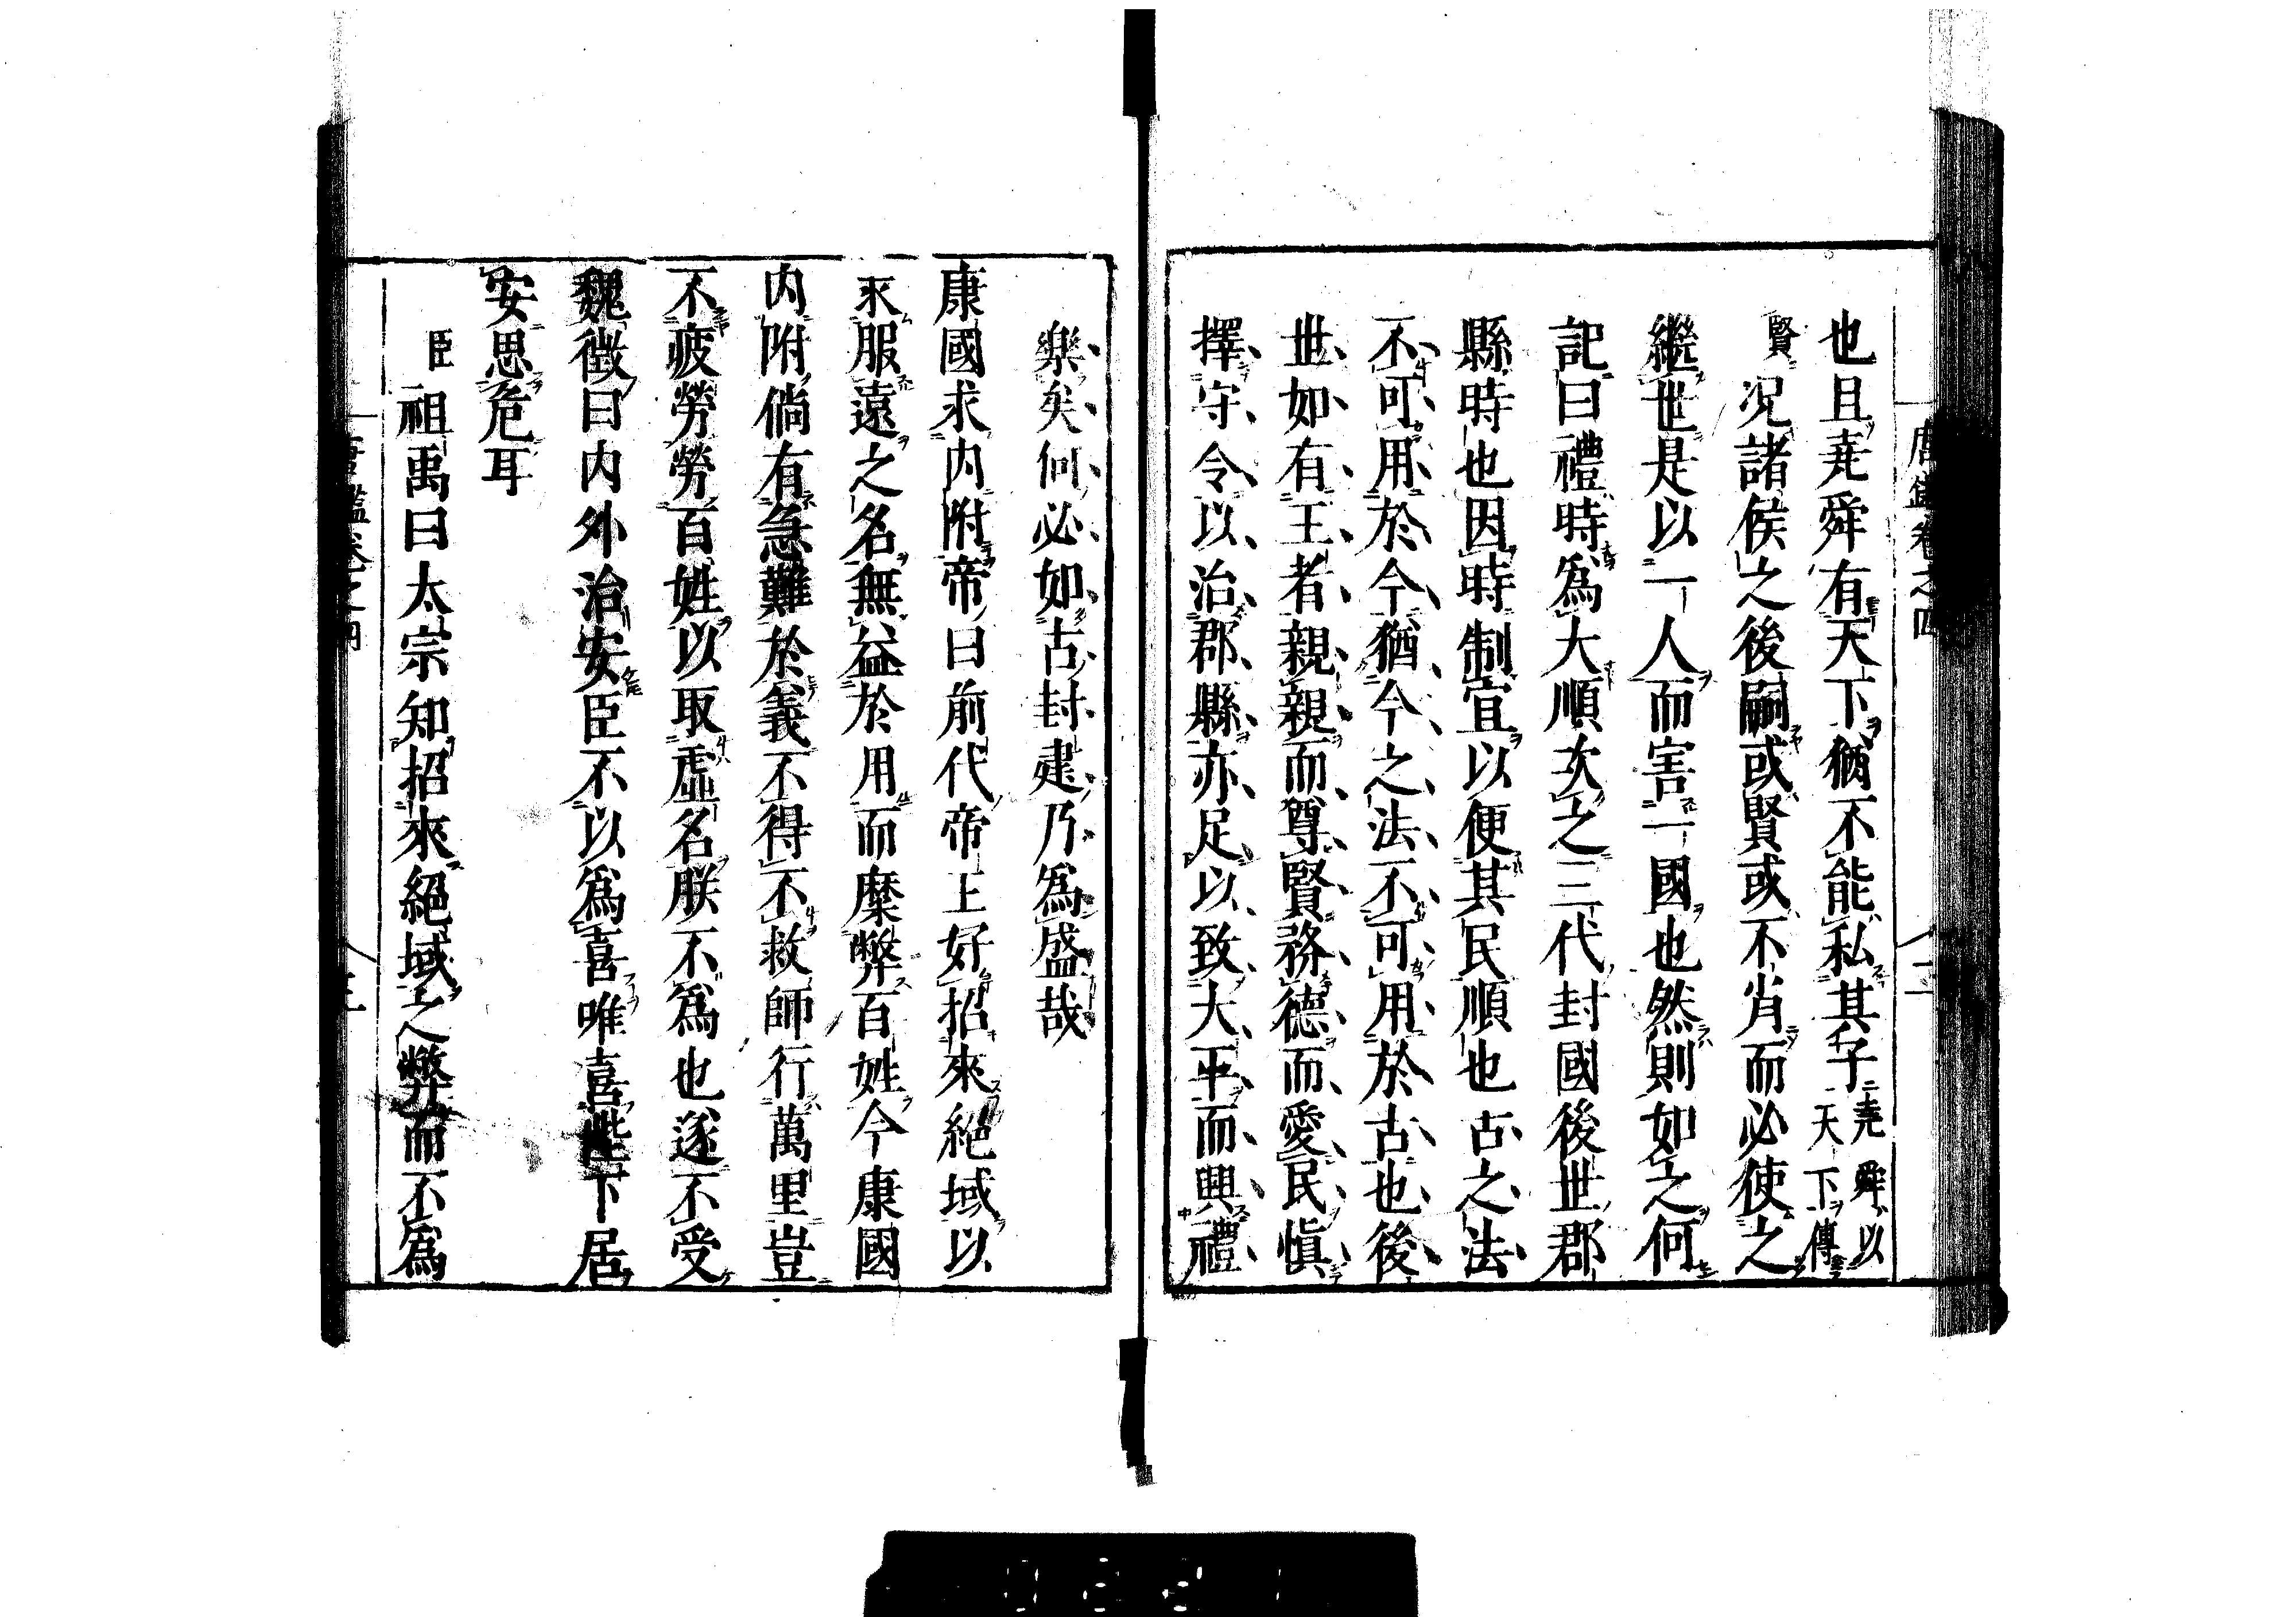 也且堯舜有天下猶不能私其子堯舜以天下傳
賢況諸侯之後嗣或賢或不肖而必使之
繼世是以一人而害一國也然則如之何
記曰禮時爲大順次之三代封國後世郡
縣時也因時制宜以便其民順也古之法
不可用於今猶今之法不可用於古也後
世如有王者親親而尊賢務德而愛民愼
擇守令以治郡縣亦足以致大平而興禮
樂矣何必如古封建乃爲盛哉
康國求内附帝曰前代帝王好招來絕域以
求服遠之名無益於用而糜弊百姓今康國
内附倘有急難於義不得不救師行萬里豈
不疲勞勞百姓以取虛名朕不爲也遂不受
魏徵曰内外治安臣不以爲喜唯喜陛下居
安思危耳
臣祖禹曰太宗知招來絕域之弊而不爲